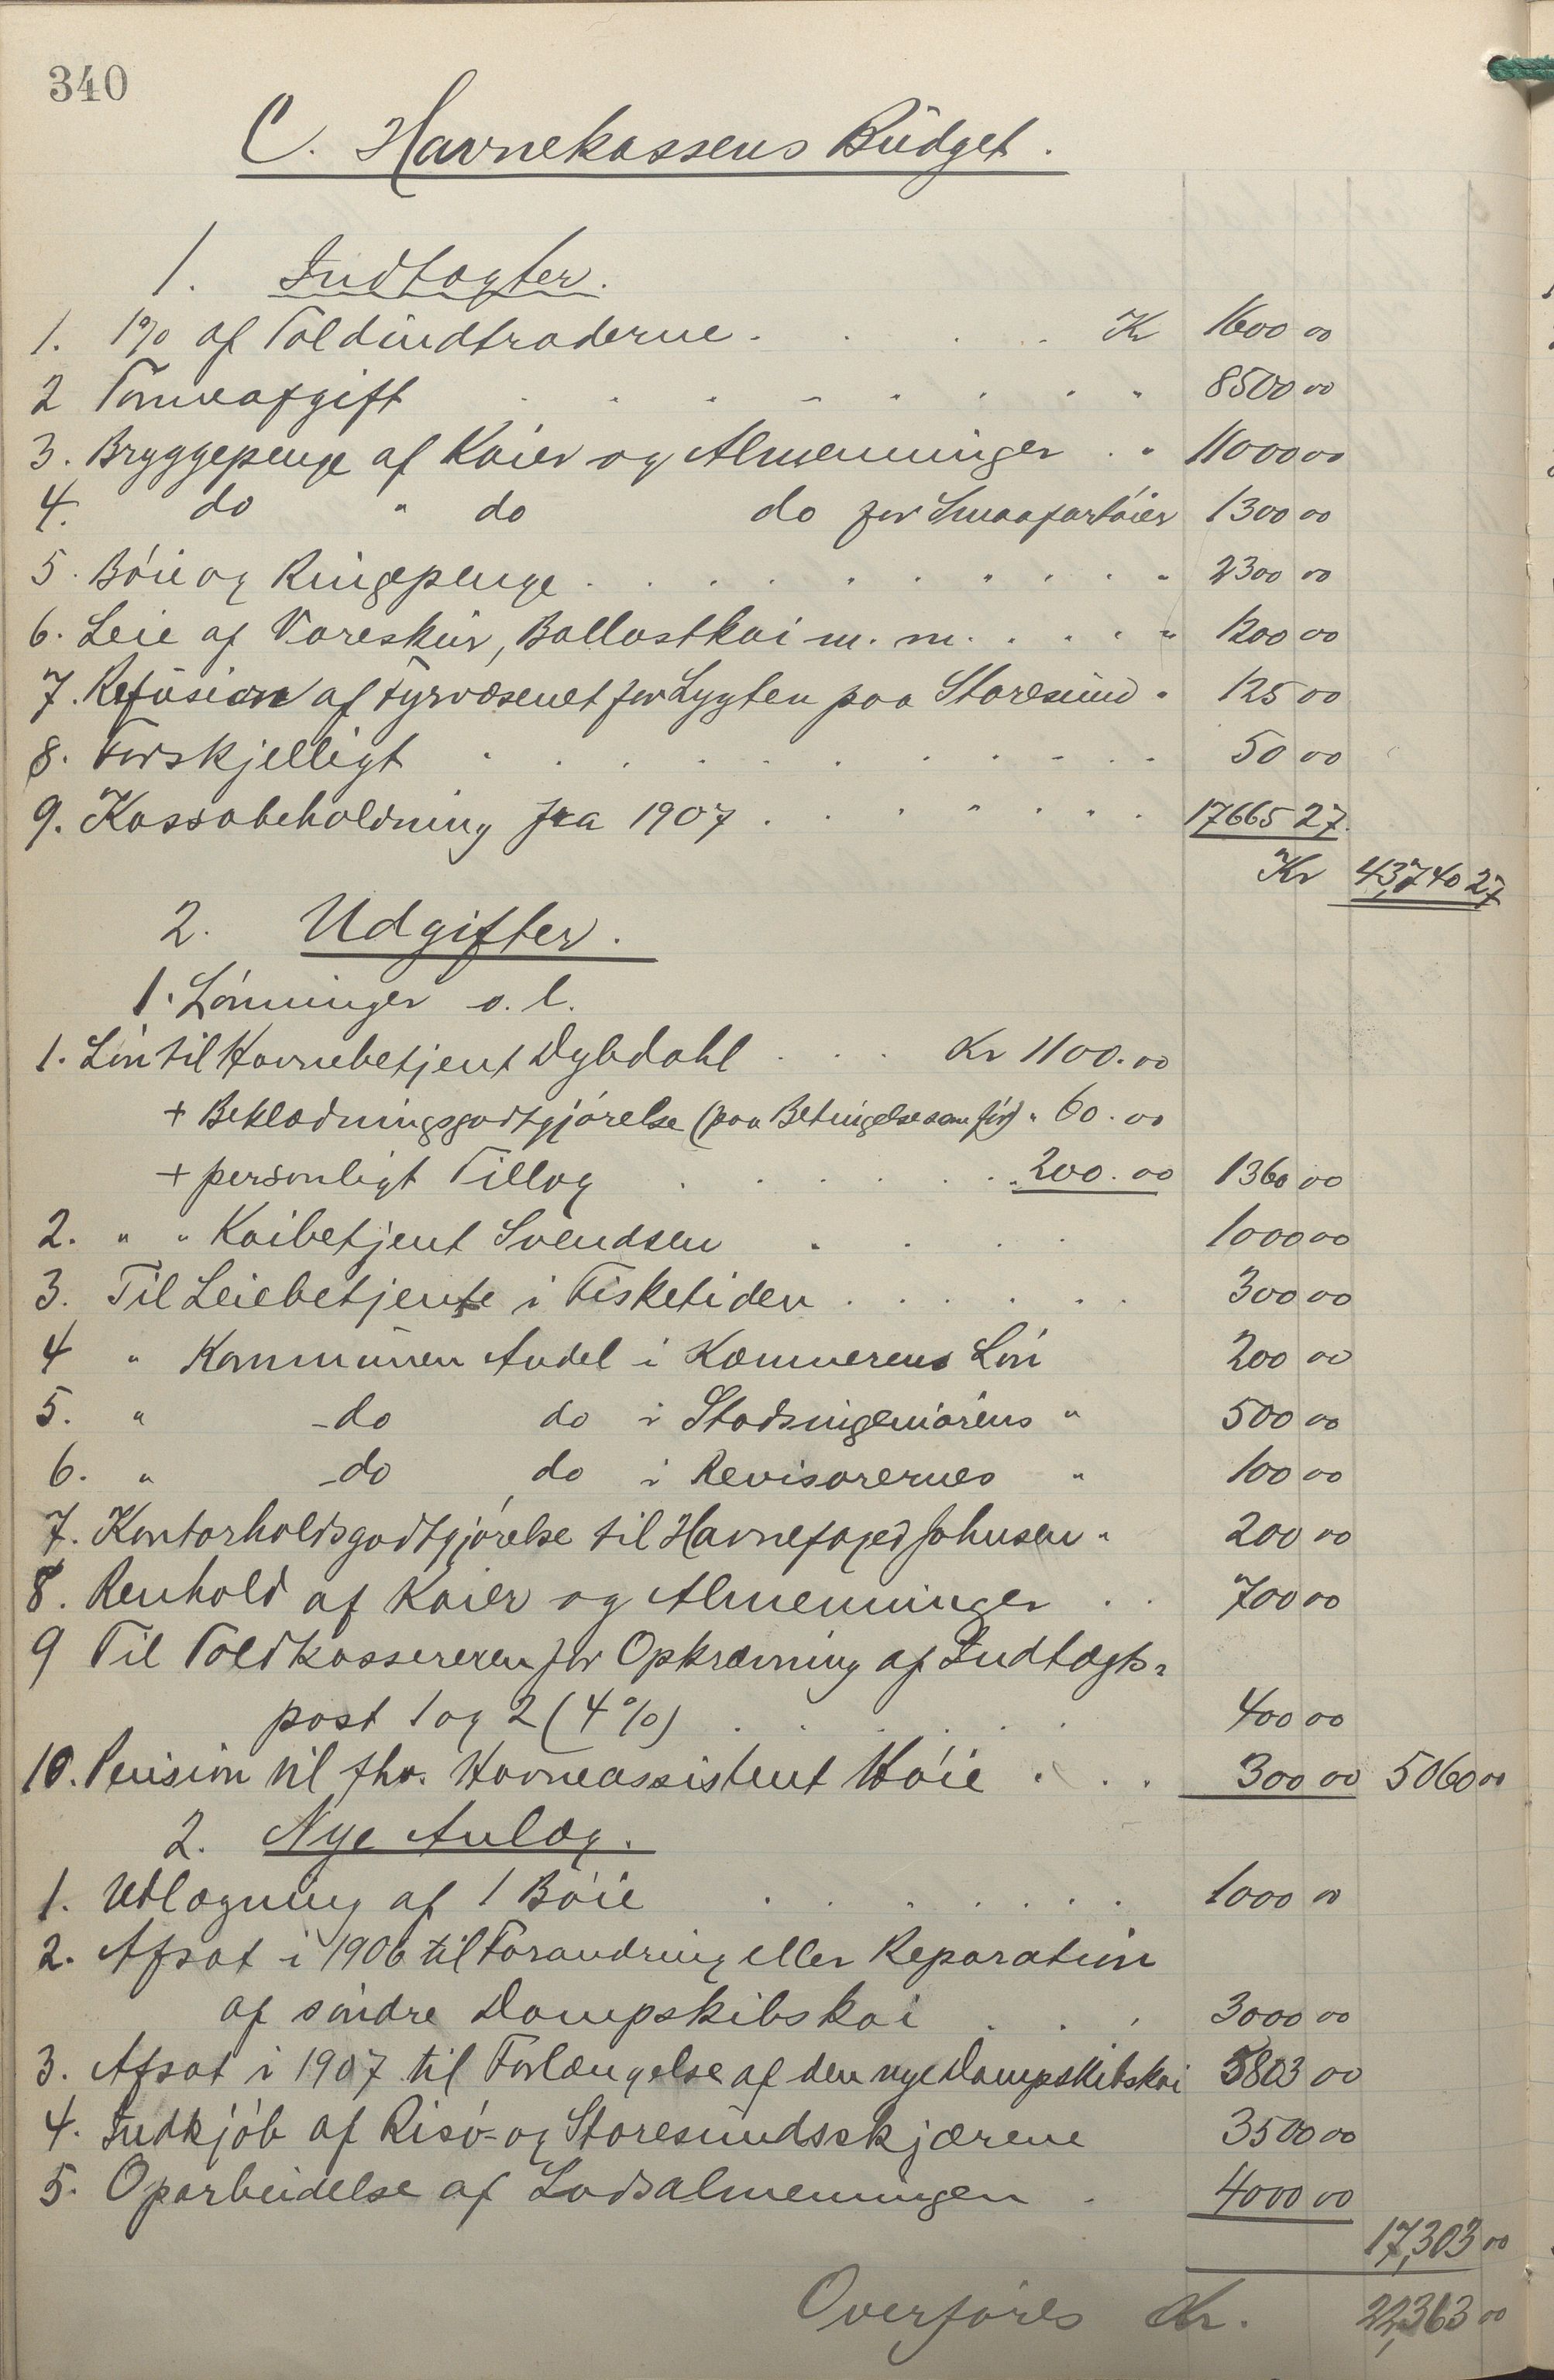 340
C. Havnekassens Büdget.
1. Indtægter.
1. 1% af Toldindtraderne . . . . Kr 1600 00
2 Tonneafgift . . . . . . . " 8500 00
3. Bryggepenge af Kaier og Almenninger . " 11000 00
4. do " do do for Smaafartöier 1300 00
5. Böie og Ringepenge . . . . . . . . . . " 2300 00
6. Leie af Vareskür, Ballastkai m. m. . . . . " 1200 00
7. Refüsion af Fyrvæsenet for Lygten paa Storesünd " 125 00
8. Forskjelligt . . . . . . . . . . . 50 00
9. Kassabeholdning fra 1907 . . . . . . . 17665 27.
Kr 43,740 27
2. Udgifter.
1. Lönninger o. l.
1. Lön til Havnebetjent Dybdahl . . . Kr 1100.00
+ Beklædningsgodtgjörelse (paa Betingelse som för) " 60.00
+ personligt Tillæg . . . . . . " 200.00 1360 00
2. " " Kaibetjent Svendsen . . . . 1000 00
3. Til Leiebetjente i Fisketiden . . . . . . 300 00
4 " Kommünen Andel i Kæmnerens Lön 200 00
5. " -do do i Stadsingeniörens " 500 00
6. " -do do i Revisorernes " 100 00
7. Kontorholdsgodtgjörelse til Havnefoged Johnsen " 200 00
8. Renhold af Kaier og Almenninger . . 700 00
9 Til Toldkassereren for Opkrævning af Indtægts-
post 1 og 2 (4%) . . . . . . 400 00
10. Pension til fhv. Havneassistent Höie . . . 300 00 5060 00
2. Nye Anlæg.
1. Udlægning af 1 Böie . . . . . . . 1000 00
2. Afsat i 1906 til Forandring eller Reparation
af söndre Dampskibskai . . . 3000 00
3. Afsat i 1907 til Forlængelse af den nye Dampskibskai 5803 00
4. Indkjöb af Risö- og Storesündsskjærene 3500 00
5. Oparbeidelse af Lodsalmenningen . 4000 00
17,303 00
Overföres Kr. 22,363 00